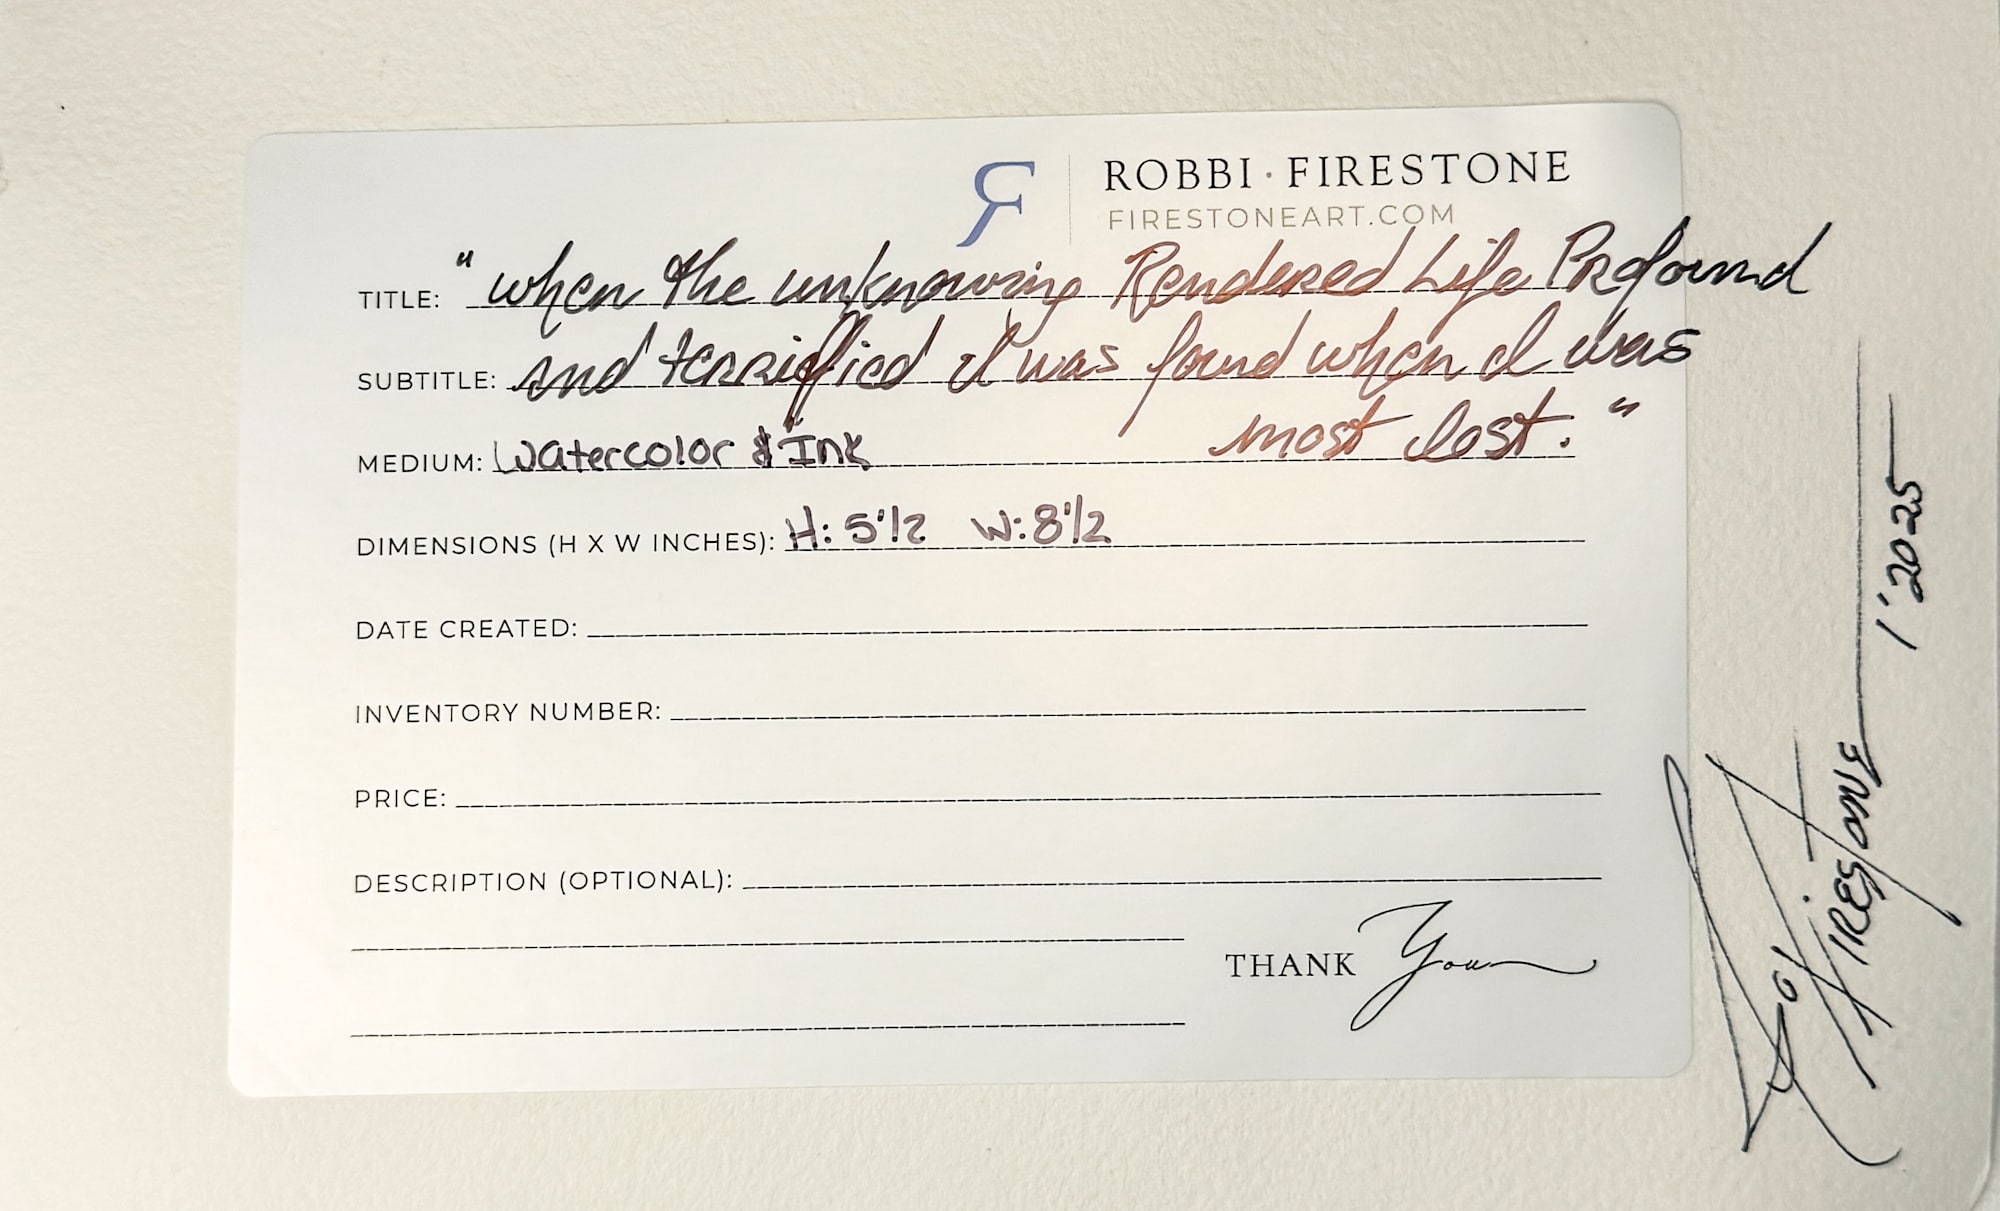 ROBBI · FIRESTONE
FIRESTONEART.COM
TITLE: "when the unknowing Rendered Life Profound
SUBTITLE: and terrified I was found when I was
most lost."
MEDIUM: Watercolor & Ink
DIMENSIONS (H X W INCHES): H: 5 1/2 W: 8 1/2
DATE CREATED:
INVENTORY NUMBER:
PRICE:
DESCRIPTION (OPTIONAL):
THANK You
Robbi FIRESTONE 1'2025